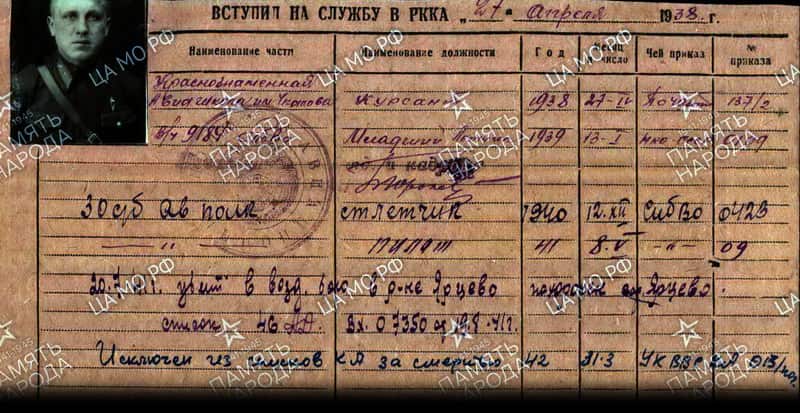 ВСТУПИЛ НА СЛУЖБУ В РККА „27" апреля 1938 г.
Наименование части Наименование должности Год Месяц число Чей приказ № приказа
Краснознаменная
Авиашкола им. Чкалова Курсант 1938 27-IV 137/
Младший 1939 13-I НКО
30 сб ав полк ст летчик 1940 12.XII СибВО 0423
— " — пилот 41 8.V — " — 09
20.7.41г. убит в возд. бою в р-не Ярцево похоронен Ярцево.
список 46 АД. Вх. 07350 от 19.8.41г.
Исключен из списков КА за смертью 42 31.3 УК ВВС КА
ЦА МО.РФ
ПАМЯТЬ
НАРОДА
1941-1945